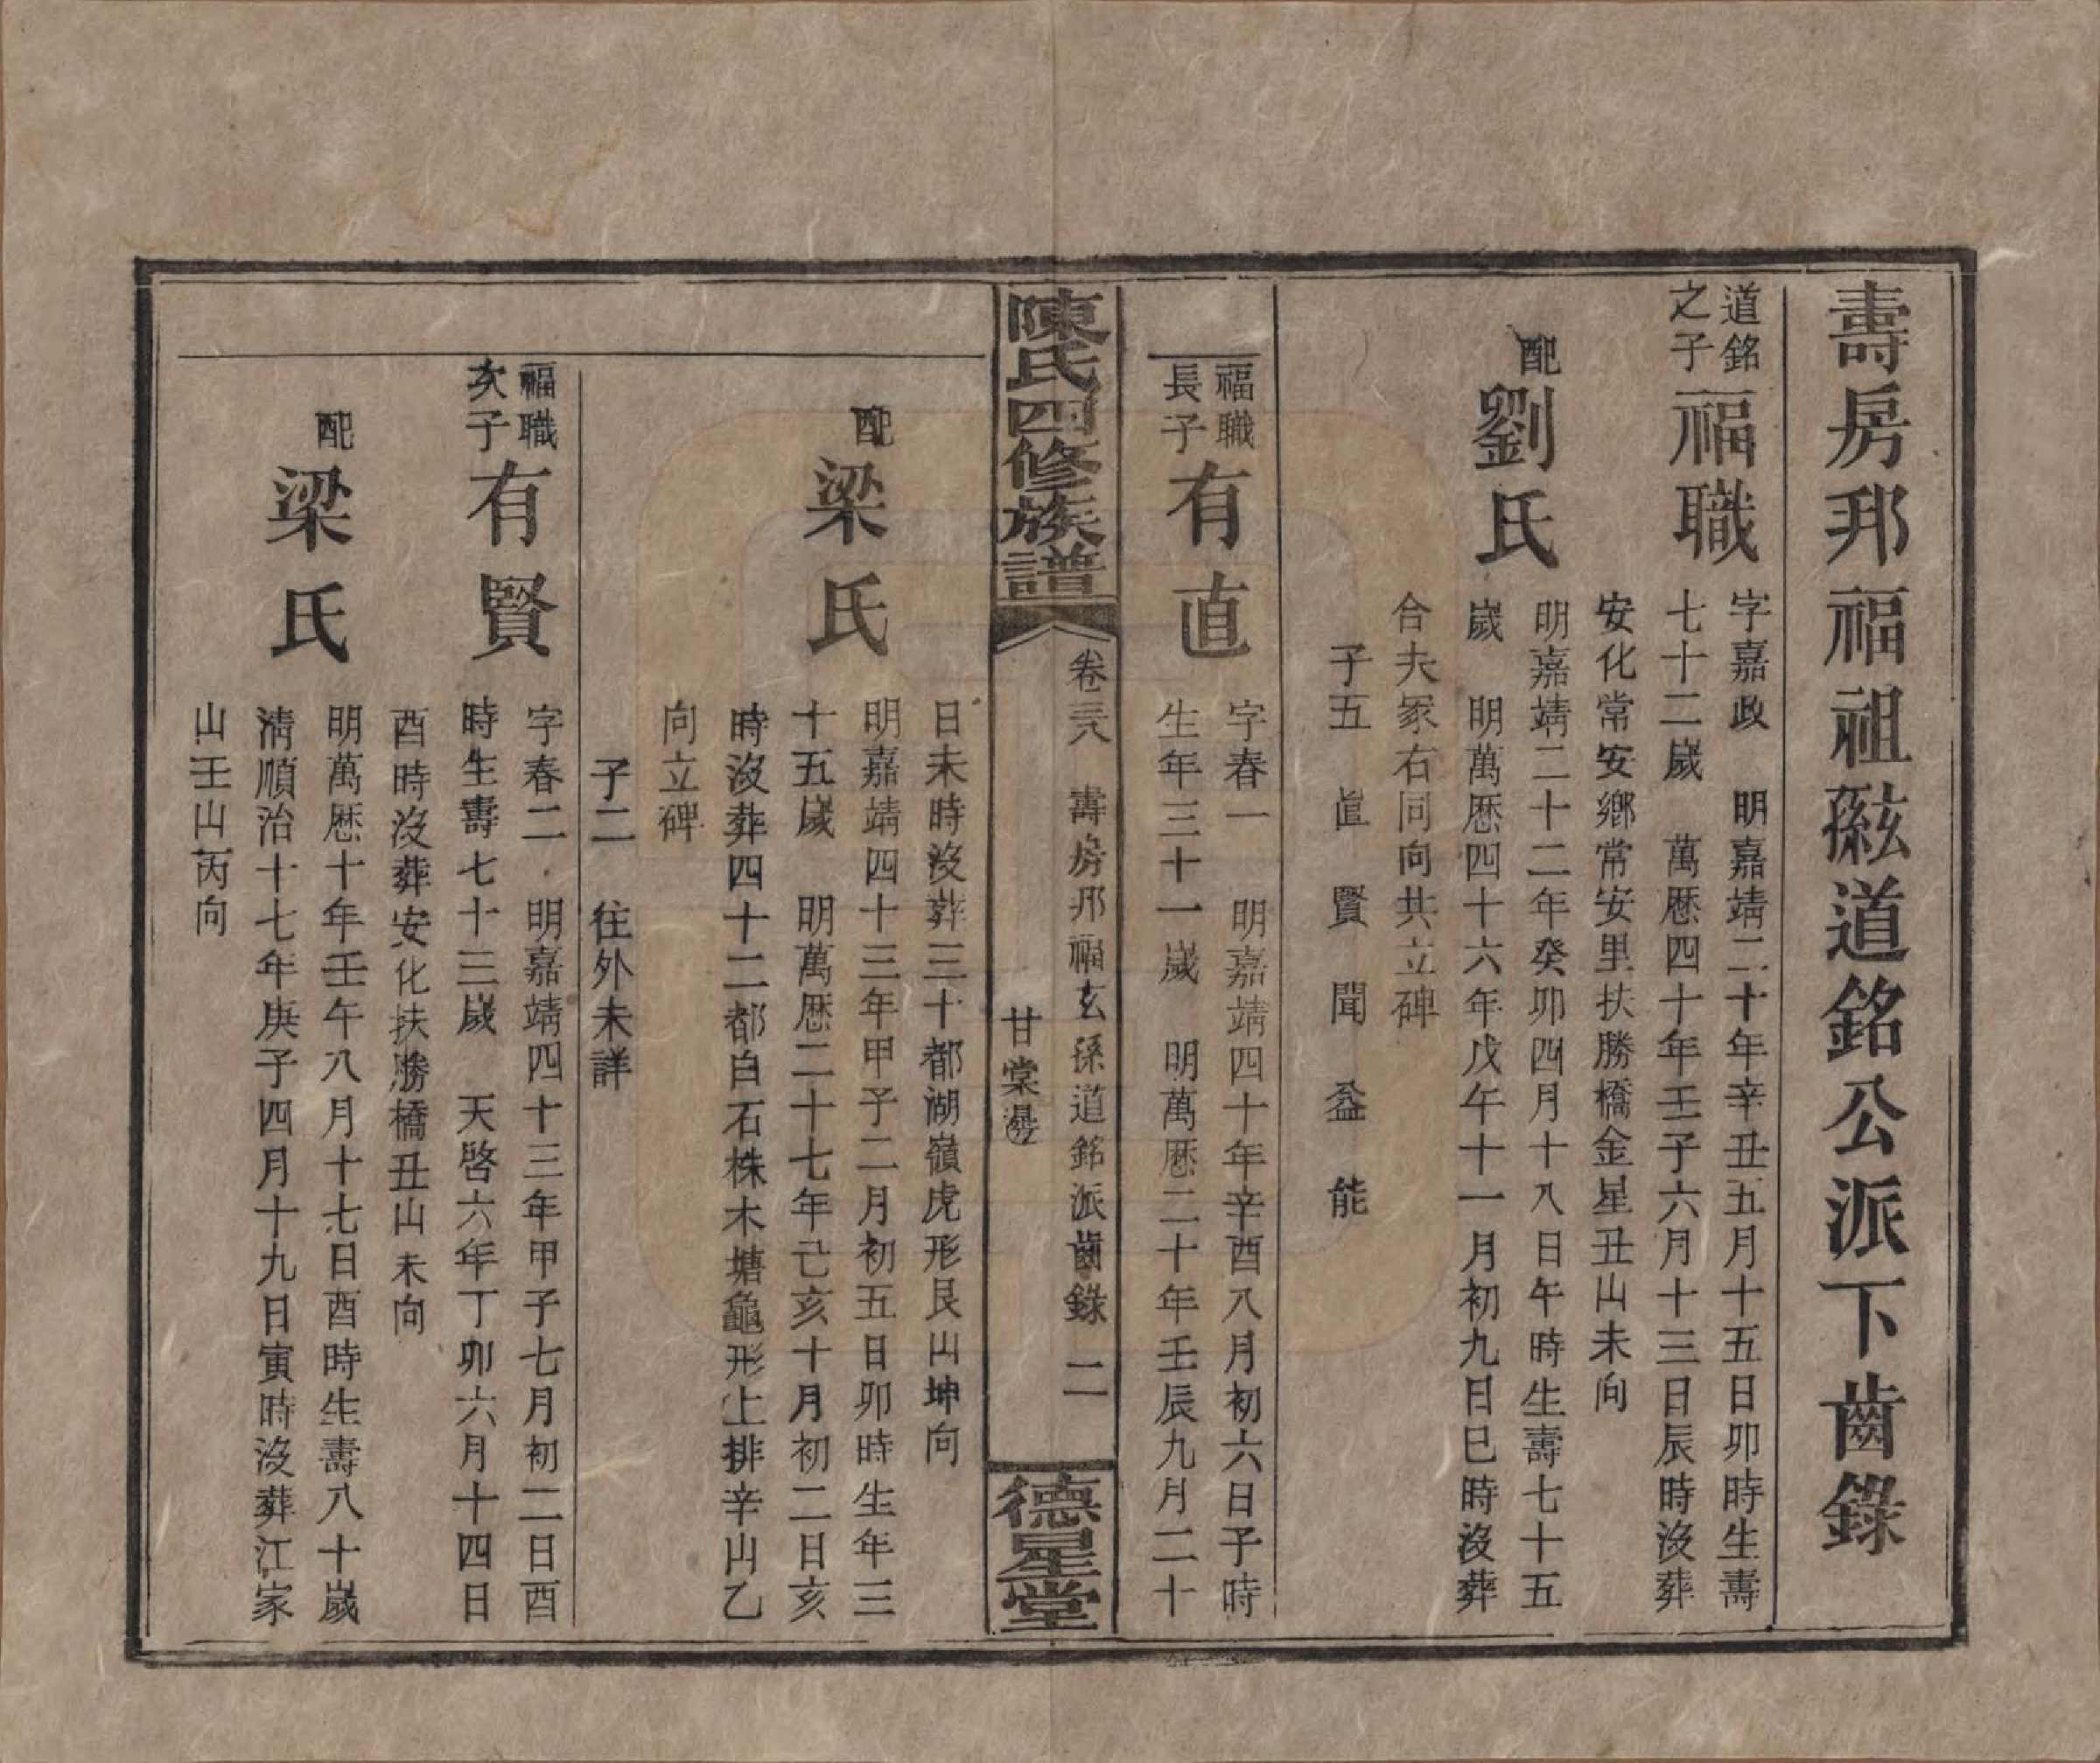 壽房邦福祖孫玄道銘公派下齒錄
道銘
之子
福職
字嘉政　明嘉靖二十年辛丑五月十五日卯時生壽
七十二歲　萬厯四十年壬子六月十三日辰時沒葬
安化常安鄉常安里扶勝橋金星丑山未向
配劉氏
明嘉靖二十二年癸卯四月十八日午時生壽七十五
歲　明萬厯四十六年戊午十一月初九日巳時沒葬
合夫冢右同向共立碑
子五　直　賢　聞　益　能
福職
長子
有直
字春一　明嘉靖四十年辛酉八月初六日子時
生年三十一歲　明萬厯二十年壬辰九月二十
陳氏四修族譜
卷三八　壽房邦福玄孫道銘派齒錄　二
甘棠
德星堂
日未時沒葬三十都湖嶺虎形艮山坤向
配梁氏
明嘉靖四十三年甲子二月初五日卯時生年三
十五歲　明萬厯二十七年己亥十月初二日亥
時沒葬四十二都白石株木塘龜形上排辛山乙
向立碑
子二　往外未詳
福職
次子
有賢
字春二　明嘉靖四十三年甲子七月初二日酉
時生壽七十三歲　天啓六年丁卯六月十四日
酉時沒葬安化扶勝橋丑山未向
配梁氏
明萬厯十年壬午八月十七日酉時生壽八十歲
清順治十七年庚子四月十九日寅時沒葬江家
山壬山丙向